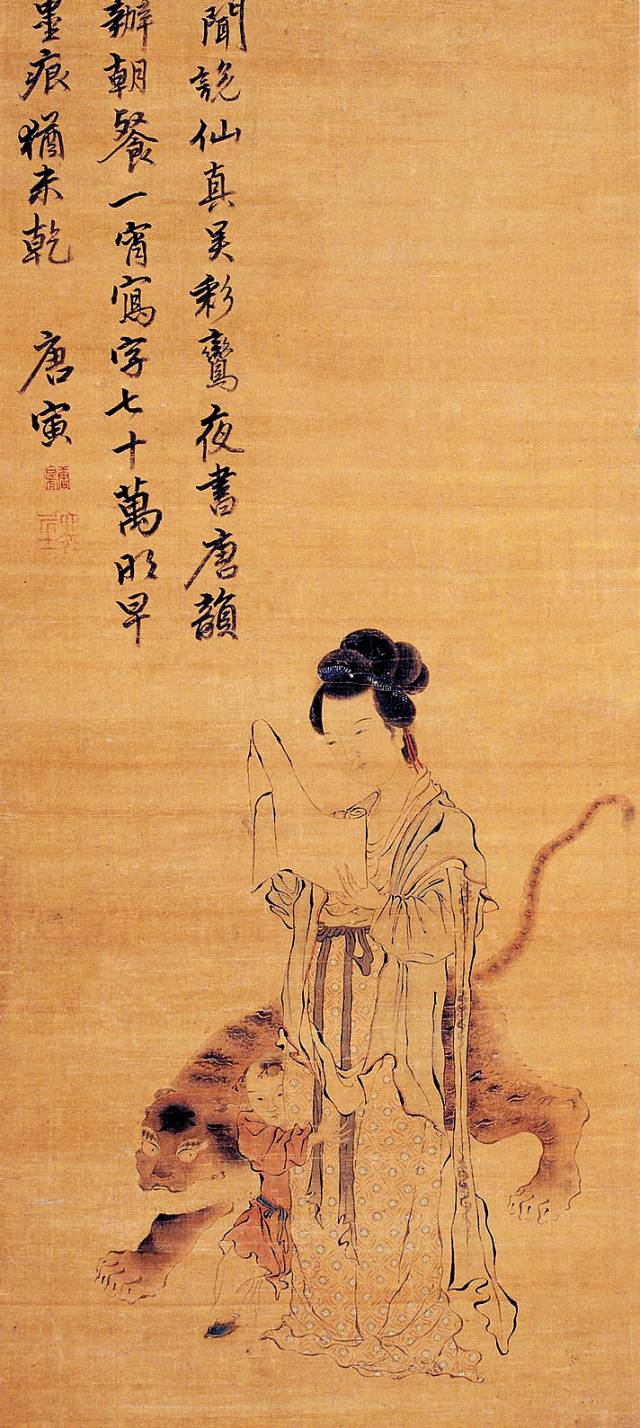 聞說仙真吳彩鸞夜書唐韻
辦朝餐一宵寫字七十萬明早
墨痕猶未乾
唐寅